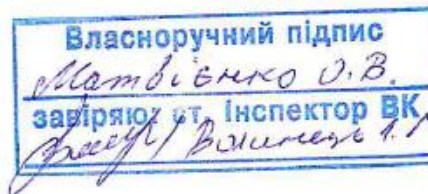 Власноручний підпис
Матвієнко О.В.
завіряю: ст. інспектор ВК